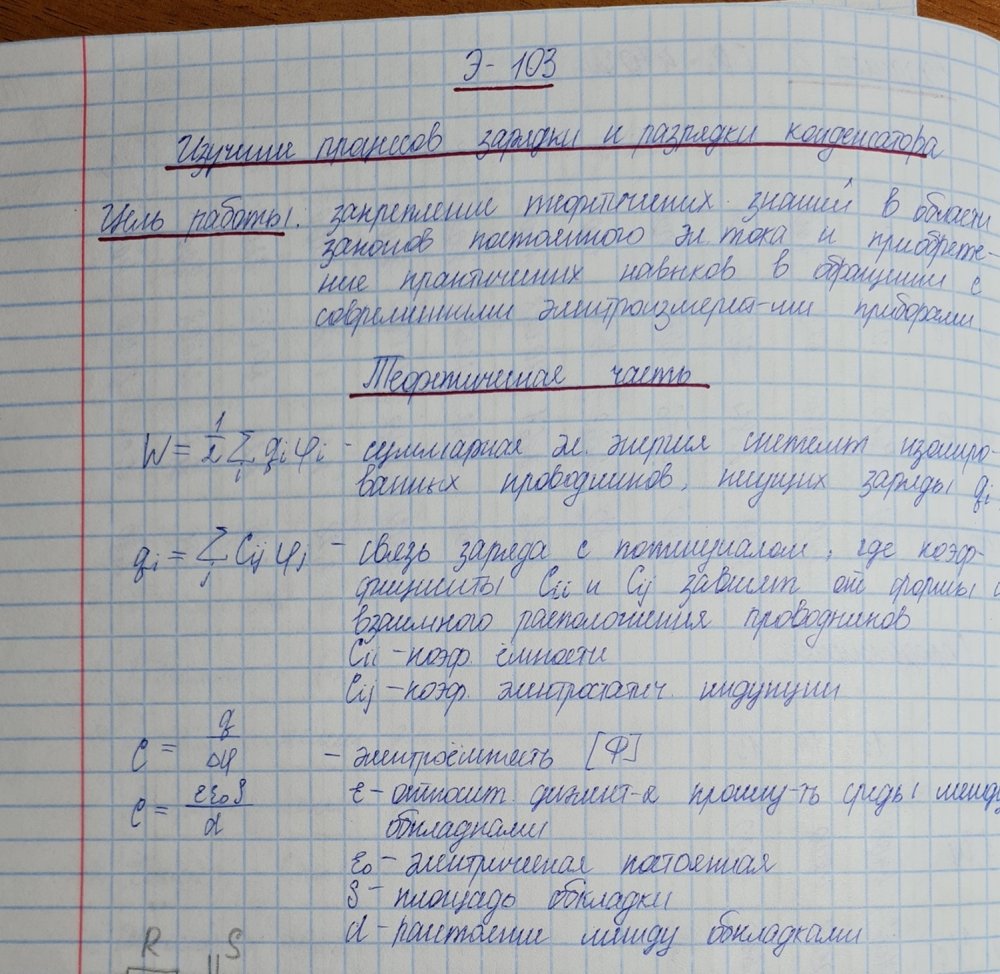 Э - 103
Изучение процессов зарядки и разрядки конденсатора
Цель работы: закрепление теоретических знаний в области
законов постоянного эл. тока и приобрете-
ние практических навыков в обращении с
современными электроизмерит-ми приборами.
Теоретическая часть
W = 1/2 Σ_i q_i φ_i - суммарная эл. энергия системы изолиро-
ванных проводников, несущих заряды q_i
q_i = Σ_j C_ij φ_j - связь заряда с потенциалом, где коэф-
фициенты C_ii и C_ij зависят от формы и
взаимного расположения проводников
C_ii - коэф. ёмкости
C_ij - коэф. электростатич. индукции
C = q/Δφ - электроёмкость [Ф]
C = εε₀S/d ε - относит. диэлект-я прониц-ть среды между
обкладками
ε₀ - электрическая постоянная
S - площадь обкладки
d - расстояние между обкладками
R S